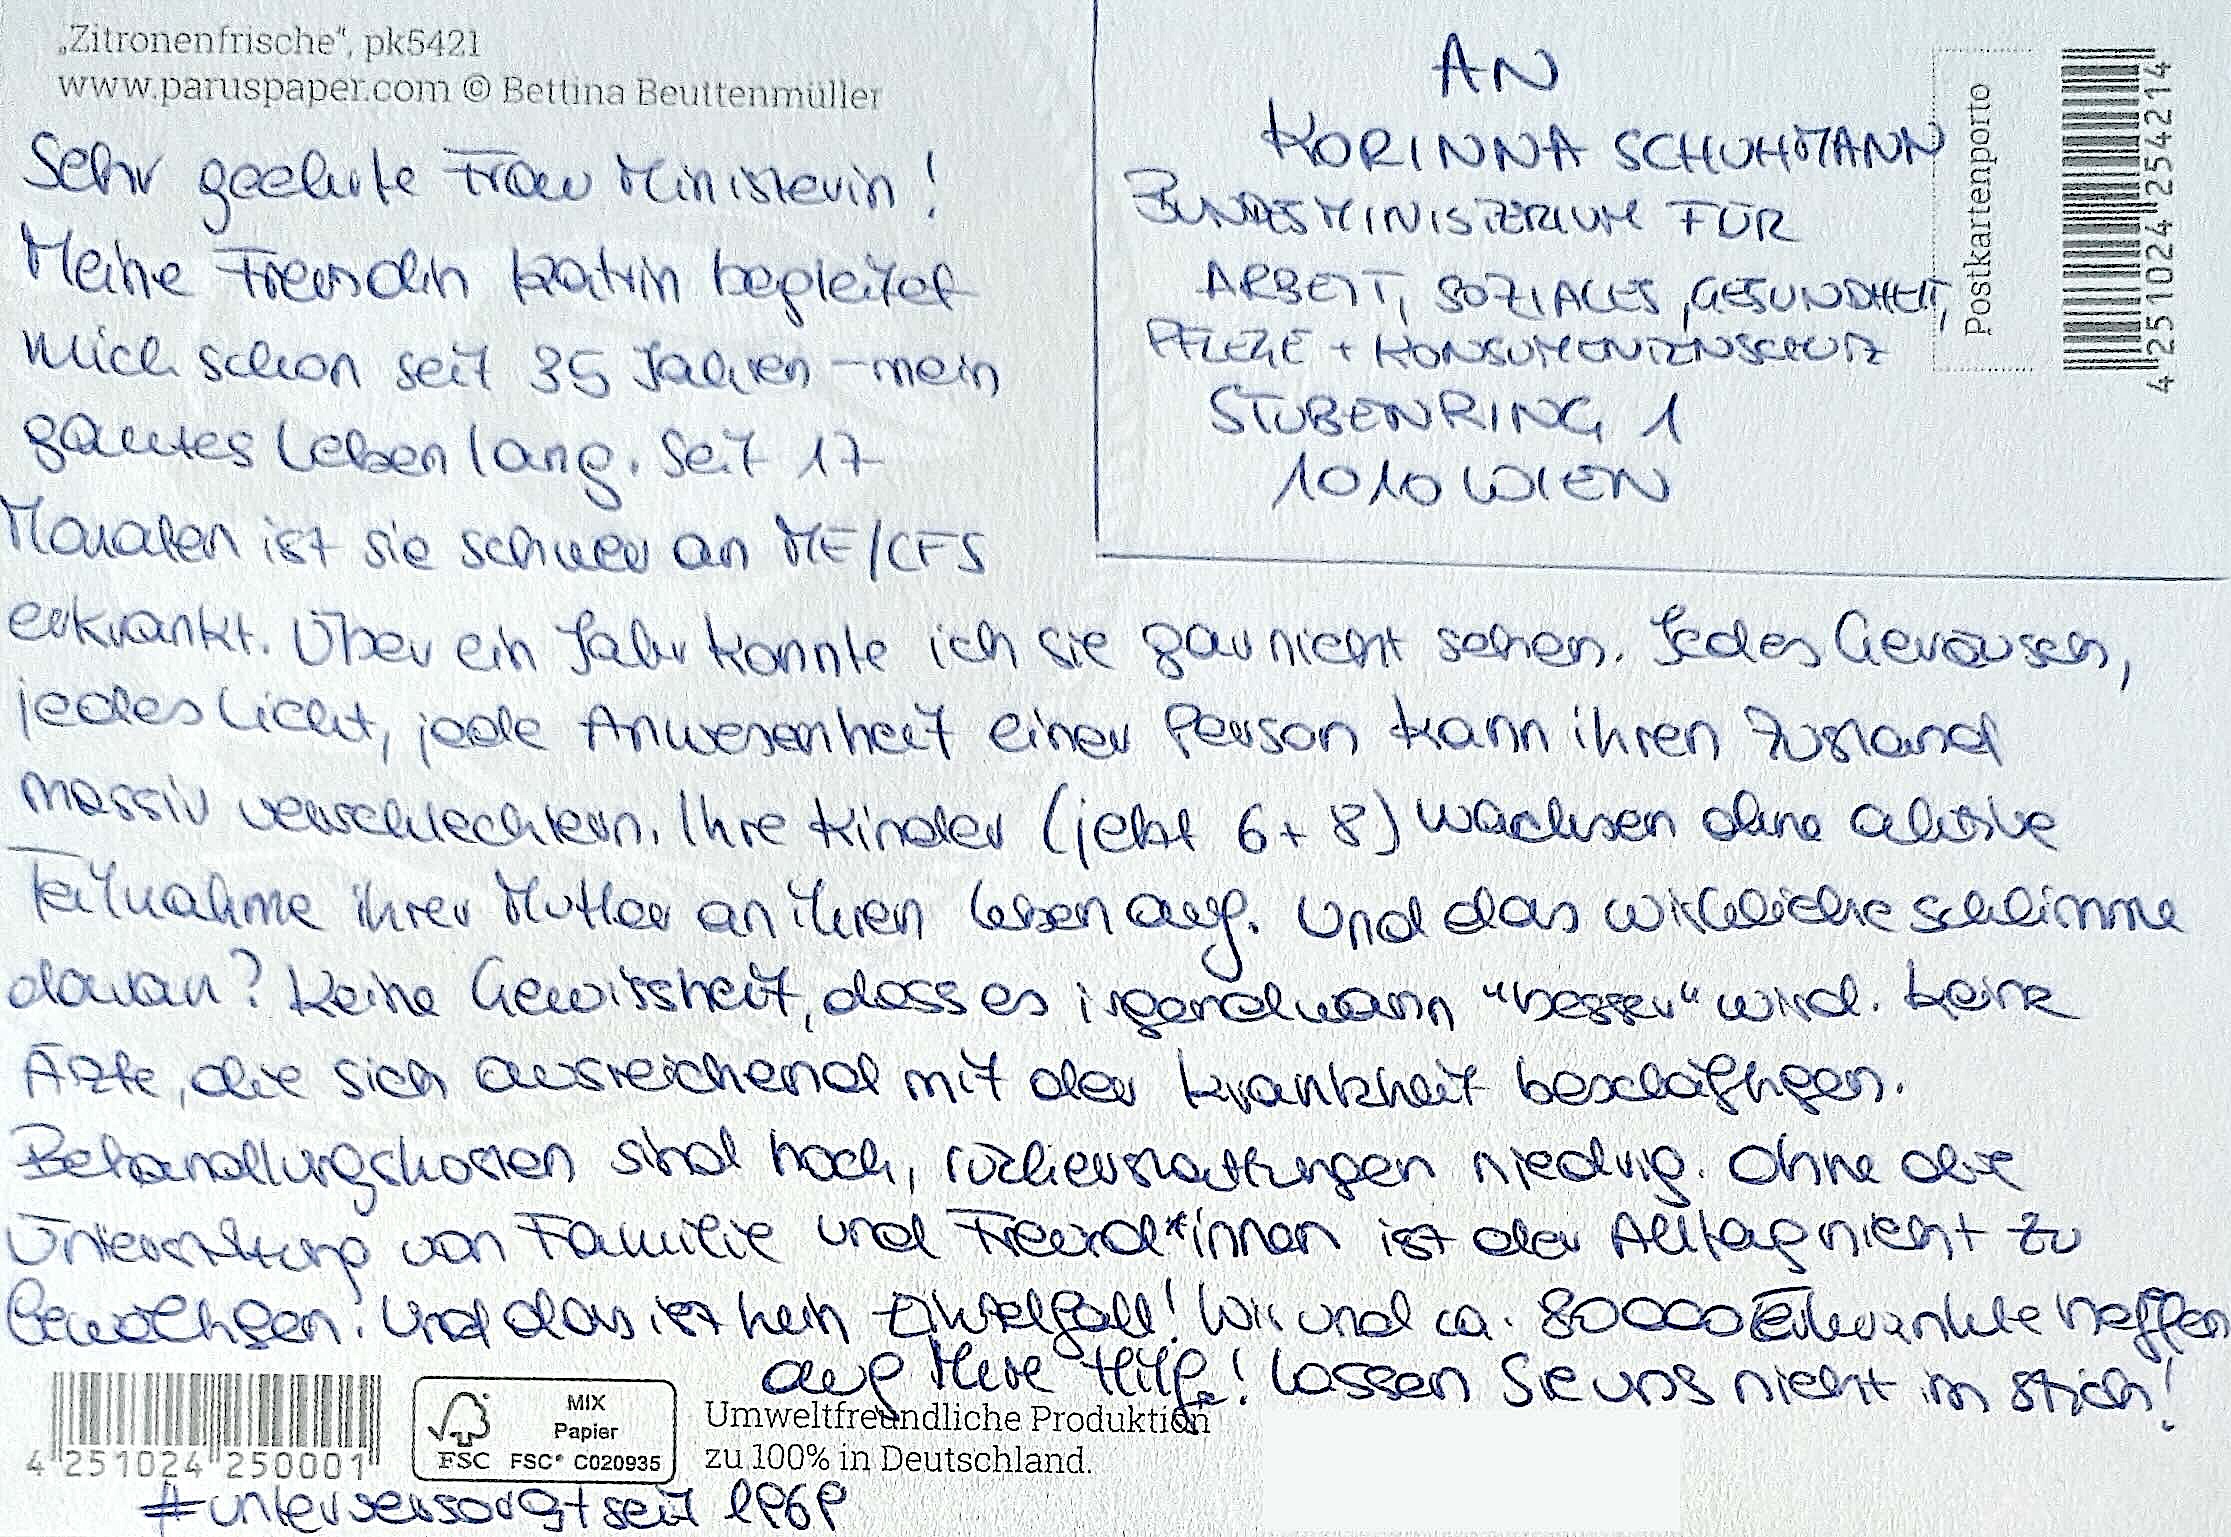 „Zitronenfrische“, pk5421
www.paruspaper.com © Bettina Beuttenmüller
AN
KORINNA SCHUHMANN
BUNDESMINISTERIUM FÜR
ARBEIT, SOZIALES, GESUNDHEIT,
PFLEGE + KONSUMENTENSCHUTZ
STUBENRING 1
1010 WIEN
Postkartenporto
4 251024 254214
Sehr geehrte Frau Ministerin!
Meine Freundin Katrin begleitet
mich schon seit 35 Jahren – mein
ganzes Leben lang. Seit 17
Monaten ist sie schwer an ME/CFS
erkrankt. Über ein Jahr konnte ich sie gar nicht sehen. Jedes Geräusch,
jedes Licht, jede Anwesenheit einer Person kann ihren Zustand
massiv verschlechtern. Ihre Kinder (jetzt 6 + 8) wachsen ohne aktive
Teilnahme ihrer Mutter an ihren Leben auf. Und das wirkliche schlimme
daran? Keine Gewissheit, dass es irgendwann "besser" wird. Keine
Ärzte, die sich ausreichend mit der Krankheit beschäftigen.
Behandlungskosten sind hoch, rückerstattungen niedrig. Ohne die
Unterstützung von Familie und Freund*innen ist der Alltag nicht zu
bewältigen. Und das ist kein Einzelfall! Wir und ca. 80000 Erkrankte hoffen
auf Ihre Hilfe! Lassen Sie uns nicht im Stich!
4 251024 250001
FSC
MIX
Papier
FSC® C020935
Umweltfreundliche Produktion
zu 100% in Deutschland.
#unterversorgt seit 1969